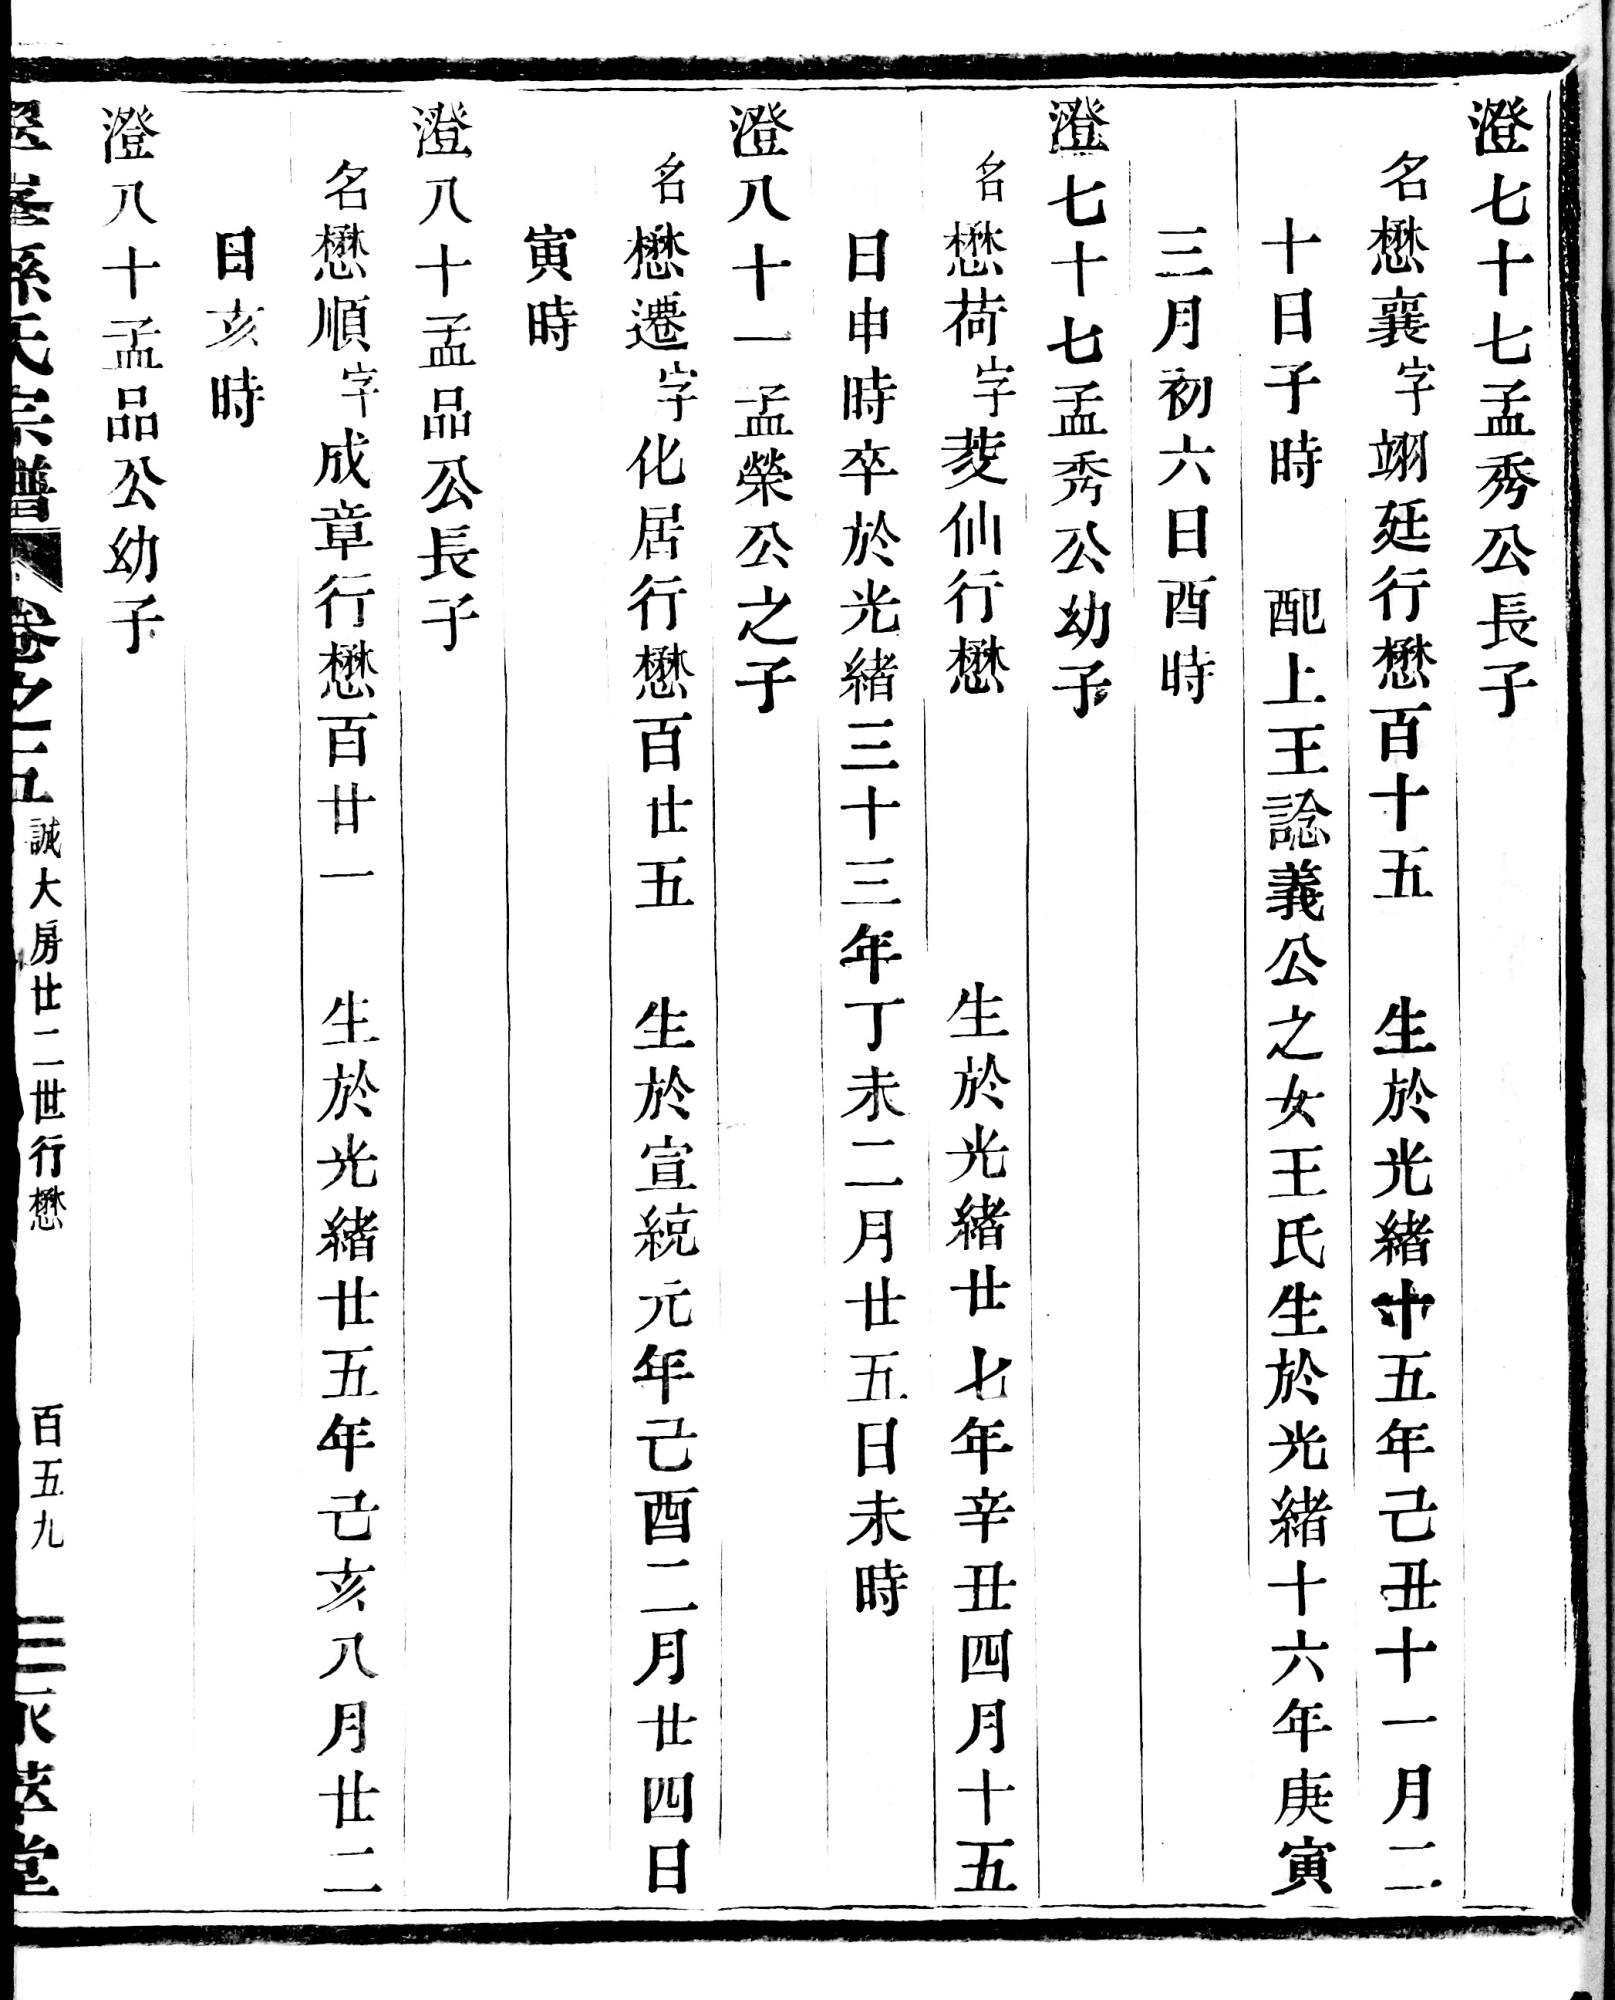 澄七十七孟秀公長子
名懋襄字翊廷行懋百十五　生於光緒十五年己丑十一月二
十日子時　配上王諗義公之女王氏生於光緒十六年庚寅
三月初六日酉時
澄七十七孟秀公幼子
名懋荷字菱仙行懋　生於光緒廿七年辛丑四月十五
日申時卒於光緒三十三年丁未二月廿五日未時
澄八十一孟榮公之子
名懋遷字化居行懋百廿五　生於宣統元年己酉二月廿四日
寅時
澄八十孟品公長子
名懋順字成章行懋百廿一　生於光緒廿五年己亥八月廿二
日亥時
澄八十孟品公幼子
孫氏宗譜　卷之五　誠大房廿二世行懋　百五九　萃堂